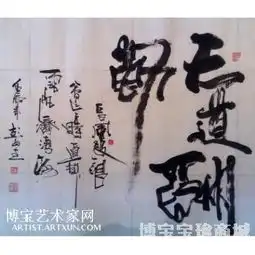 天道酬
勤
長風破浪
會有時直掛
雲帆濟滄海
博宝艺术家网
ARTIST.ARTXUN.COM